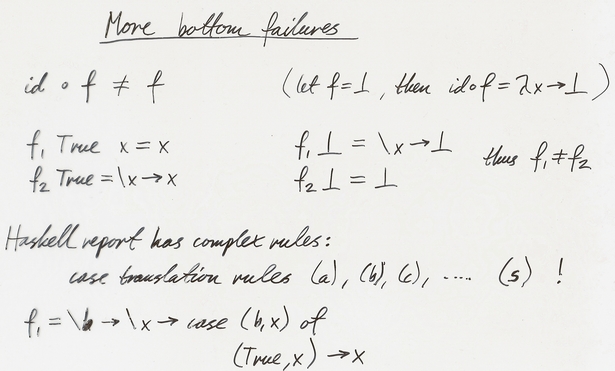 More bottom failures
id ∘ f ≠ f (let f=⊥, then id∘f = λx→⊥)
f₁ True x = x f₁ ⊥ = \x→⊥
f₂ True = \x→x f₂ ⊥ = ⊥ thus f₁≠f₂
Haskell report has complex rules:
case translation rules (a), (b), (c), .... (s) !
f₁ = \b → \x → case (b,x) of
(True,x) → x